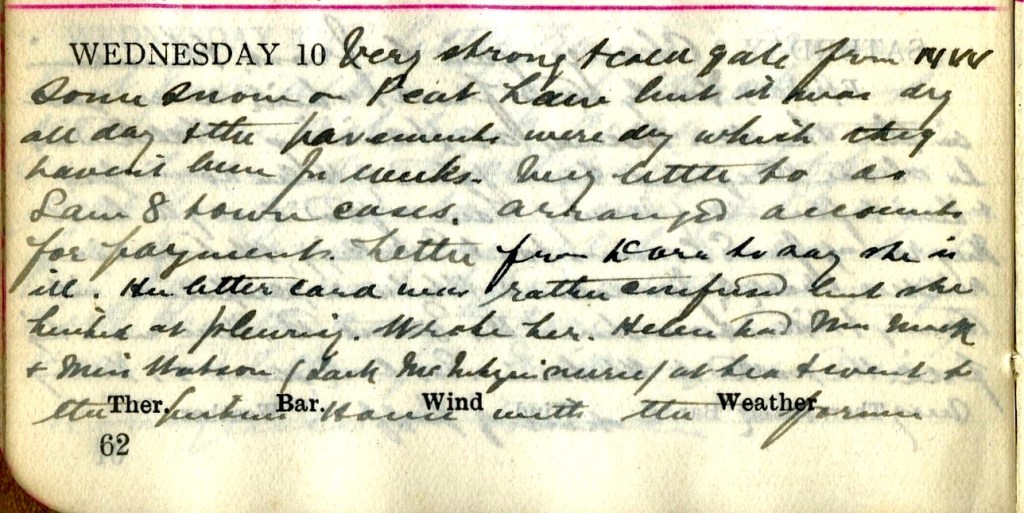 WEDNESDAY 10 Very strong & cold gale from NW
some snow on Peat Law but it was dry
all day & the pavements were dry which they
haven't been for weeks. Very little to do
Saw 8 town cases. Arranged accounts
for payment. Letter from Dora to say she is
ill. Her letter card was rather confused but she
hinted at pleurisy. Wrote her. Helen had Mrs
& Miss Watson (Jack nurse) at tea & went to
the House with the former
Ther. Bar. Wind Weather
62